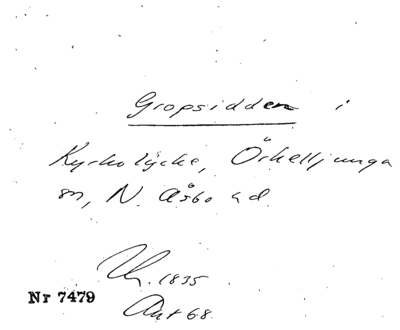 Gropsidden i
Kyrkolycke, Örkelljunga
sn, N. Åsbo hd.
1835
Nr 7479
Akt 68.